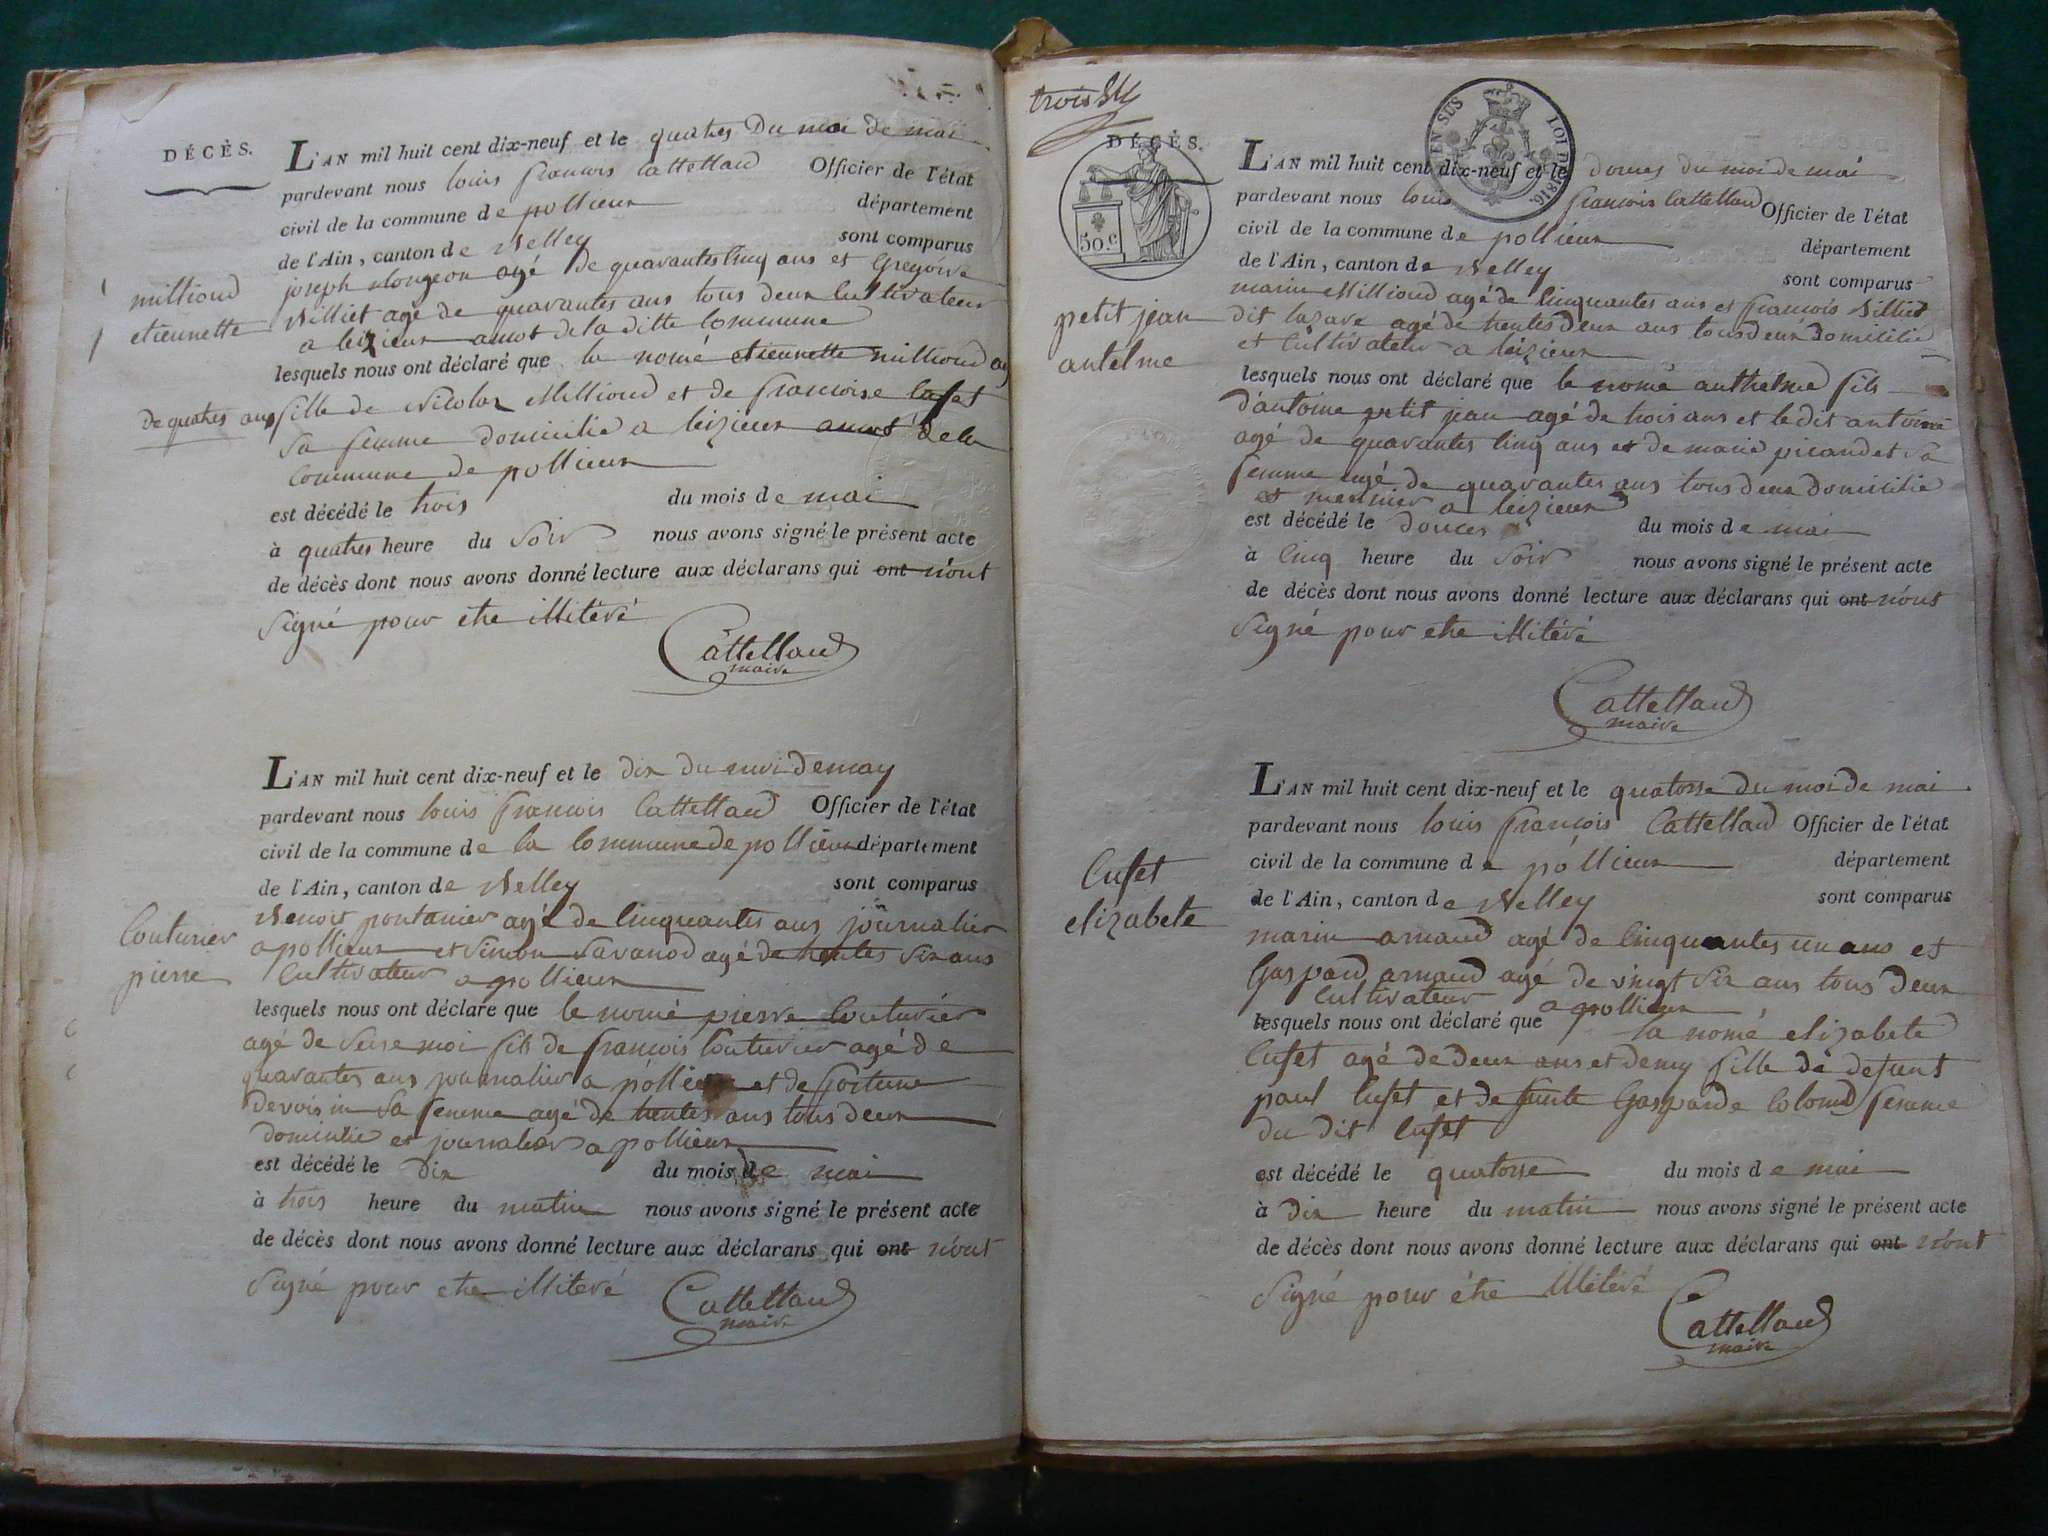 DÉCÈS.
L'AN mil huit cent dix-neuf et le quatres Du moi de mai
pardevant nous louis francois Cattelland Officier de l'état
civil de la commune de pollieux département
de l'Ain, canton de Belley sont comparus
joseph Mongeon agé de quarantes Cinq ans et Gregoire
Billiet agé de quarantes ans tous deux Cultivateur
a leizieux amot de la ditte Commune
millioud
etiennette
lesquels nous ont déclaré que la nomé etiennette millioud ag
de quatres ans fille de Nicolas Millioud et de francoise Cuset
Sa femme domicilié a leizieux amot de la
Commune de pollieux
est décédé le trois du mois de mai
à quatres heure du Soir nous avons signé le présent acte
de décès dont nous avons donné lecture aux déclarans qui ont n'ont
Signé pour etre illitéré
Cattelland
maire
L'AN mil huit cent dix-neuf et le dix du moi de may
pardevant nous louis francois Cattelland Officier de l'état
civil de la commune de la Commune de pollieux département
de l'Ain, canton de Belley sont comparus
Couturier
pierre
Benoit pontanier agé de Cinquantes ans journalier
a pollieux et Simon Savanod agé de trentes Six ans
Cultivateur a pollieux
lesquels nous ont déclaré que le nomé pierre Couturier
agé de Seise moi fils de francois Couturier agé de
quarantes ans journalier a pollieux et de fortune
devoisin Sa femme agé de trentes ans tous deux
domicilié et journalier a pollieux
est décédé le Dix du mois de mai
à trois heure du matin nous avons signé le présent acte
de décès dont nous avons donné lecture aux déclarans qui ont n'ont
Signé pour etre illitéré
Cattelland
maire
trois
DÉCÈS.
50.c
EN SUS
LOI DE 1816.
L'AN mil huit cent dix-neuf et le douces du moi de mai
pardevant nous louis francois Cattelland Officier de l'état
civil de la commune de pollieux département
de l'Ain, canton de Belley sont comparus
petit jean
antelme
marin Millioud agé de Cinquantes ans et francois Billiet
dit lazare agé de trentes deux ans tous deux Domicilié
et Cultivateur a leizieux
lesquels nous ont déclaré que le nomé anthelme fils
d'antoine petit jean agé de trois ans et le dit antoine
agé de quarantes Cinq ans et de marie picandet Sa
femme agé de quarantes ans tous deux domicilié
et meunier a leizieux
est décédé le douces du mois de mai
à Cinq heure du Soir nous avons signé le présent acte
de décès dont nous avons donné lecture aux déclarans qui ont n'ont
Signé pour etre illitéré
Cattelland
maire
L'AN mil huit cent dix-neuf et le quatorse du moi de mai
pardevant nous louis françois Cattelland Officier de l'état
civil de la commune de pollieux département
de l'Ain, canton de Belley sont comparus
Cuset
elizabete
marin arnaud agé de Cinquantes un ans et
Gaspard arnaud agé de vingt Six ans tous deux
Cultivateur a pollieux
lesquels nous ont déclaré que la nomé elizabete
Cuset agé de deux ans et demy fille de defunt
paul Cuset et de Gasparde Colomd femme
du dit Cuset
est décédé le quatorse du mois de mai
à Dix heure du matin nous avons signé le présent acte
de décès dont nous avons donné lecture aux déclarans qui ont n'ont
Signé pour étre illitéré
Cattelland
maire